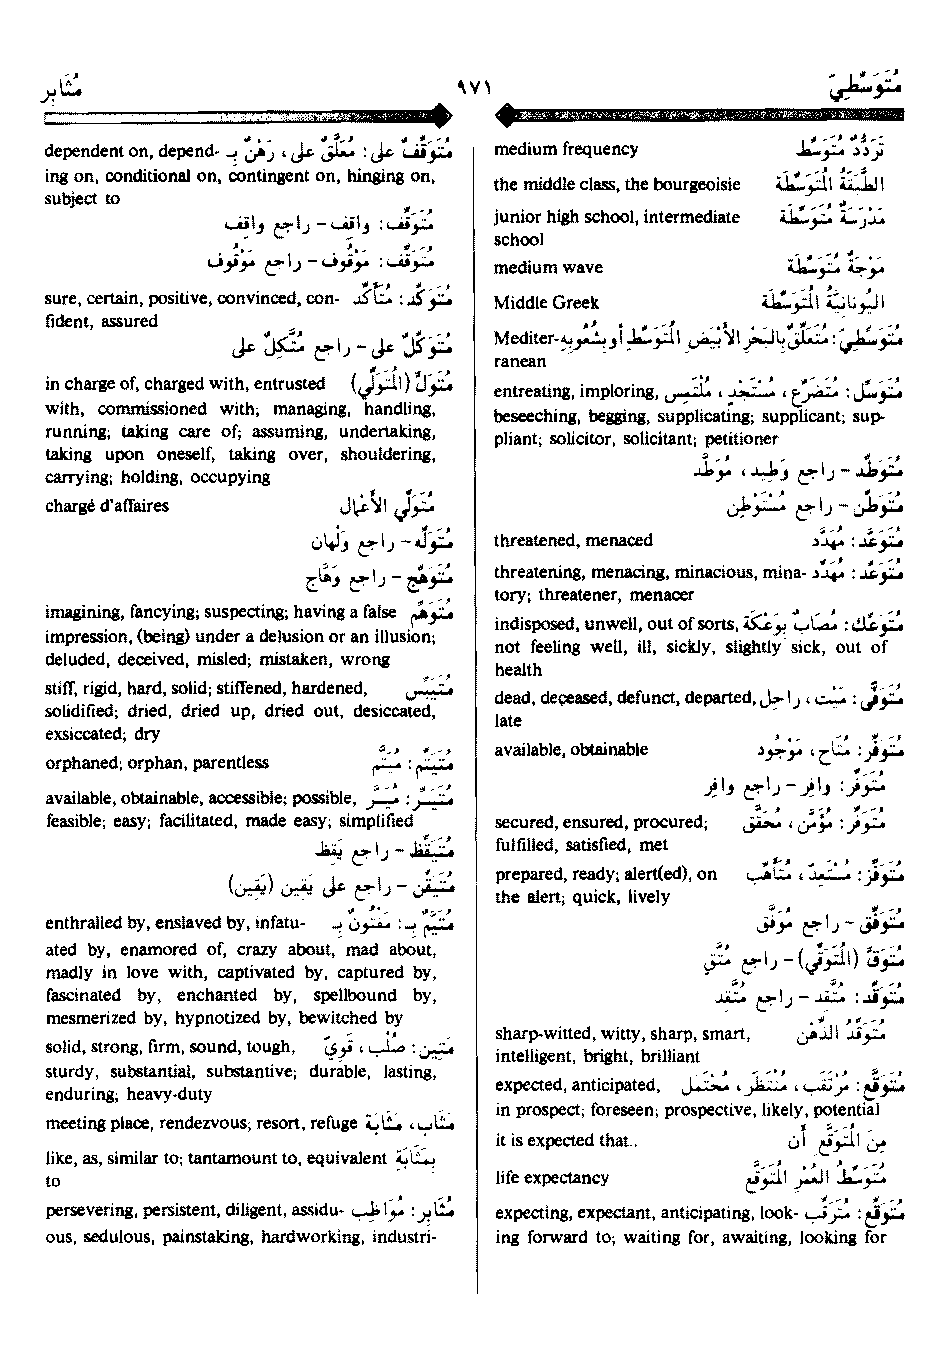 مُتَوَسِّطِيّ
٩٧١
مُثَابِر
medium frequency تَرَدُّدٌ مُتَوَسِّطٌ
the middle class, the bourgeoisie الطَّبَقَةُ الْمُتَوَسِّطَة
junior high school, intermediate مَدْرَسَةٌ مُتَوَسِّطَة
school
medium wave مَوْجَةٌ مُتَوَسِّطَة
Middle Greek اليُونَانِيَّةُ الْمُتَوَسِّطَة
Mediter- مُتَوَسِّطِيّ: مُتَعَلِّقٌ بِالبَحْرِ الأَبْيَضِ الْمُتَوَسِّطِ أو بِشُعُوبِه
ranean
entreating, imploring, مُتَوَسِّل: مُتَضَرِّع ، مُسْتَنْجِد ، مُلْتَمِس
beseeching, begging, supplicating; supplicant; sup-
pliant; solicitor, solicitant; petitioner
مُتَوَطِّد - راجع وَطِيد ، مُوَطَّد
مُتَوَطِّن - راجع مُسْتَوْطِن
threatened, menaced مُتَوَعَّد: مُهَدَّد
threatening, menacing, minacious, mina- مُتَوَعِّد: مُهَدِّد
tory; threatener, menacer
indisposed, unwell, out of sorts, مُتَوَعِّك: مُصَابٌ بِوَعْكَة
not feeling well, ill, sickly, slightly sick, out of
health
dead, deceased, defunct, departed, مُتَوَفًّى: مَيِّت ، راحِل
late
available, obtainable مُتَوَفِّر: مُتَاح ، مَوْجُود
مُتَوَفِّر: وافِر - راجع وافِر
secured, ensured, procured; مُتَوَفِّر: مُؤَمَّن ، مُحَقَّق
fulfilled, satisfied, met
prepared, ready; alert(ed), on مُتَوَفِّز: مُسْتَعِدّ ، مُتَأَهِّب
the alert; quick, lively
مُتَوَفِّق - راجع مُوَفَّق
مُتَوَقٍّ (الْمُتَوَقِّي) - راجع مُتَّقٍ
مُتَوَقِّد: مُتَّقِد - راجع مُتَّقِد
sharp-witted, witty, sharp, smart, مُتَوَقِّدُ الذِّهْن
intelligent, bright, brilliant
expected, anticipated, مُتَوَقَّع: مُرْتَقَب ، مُنْتَظَر ، مُحْتَمَل
in prospect; foreseen; prospective, likely, potential
it is expected that.. مِنَ الْمُتَوَقَّعِ أَن
life expectancy مُتَوَسِّطُ العُمْرِ الْمُتَوَقَّع
expecting, expectant, anticipating, look- مُتَوَقِّع: مُتَرَقِّب
ing forward to; waiting for, awaiting, looking for
dependent on, depend- مُتَوَقِّفٌ على: مُعَلَّقٌ على ، رَهْنٌ بِـ
ing on, conditional on, contingent on, hinging on,
subject to
مُتَوَقِّف: واقِف - راجع واقِف
مُتَوَقِّف: مَوْقُوف - راجع مَوْقُوف
sure, certain, positive, convinced, con- مُتَوَكِّد: مُتَأَكِّد
fident, assured
مُتَوَكِّلٌ على - راجع مُتَّكِلٌ على
in charge of, charged with, entrusted مُتَوَلٍّ (الْمُتَوَلِّي)
with, commissioned with; managing, handling,
running; taking care of; assuming, undertaking,
taking upon oneself, taking over, shouldering,
carrying; holding, occupying
chargé d'affaires مُتَوَلِّي الأَعْمَال
مُتَوَلِّه - راجع وَلْهَان
مُتَوَهِّج - راجع وَهَّاج
imagining, fancying; suspecting; having a false مُتَوَهِّم
impression, (being) under a delusion or an illusion;
deluded, deceived, misled; mistaken, wrong
stiff, rigid, hard, solid; stiffened, hardened, مُتَيَبِّس
solidified; dried, dried up, dried out, desiccated,
exsiccated; dry
orphaned; orphan, parentless مُتَيَتِّم: مُيَتَّم
available, obtainable, accessible; possible, مُتَيَسِّر: مُيَسَّر
feasible; easy; facilitated, made easy; simplified
مُتَيَقِّظ - راجع يَقِظ
مُتَيَقِّن - راجع على يَقِين (يَقِين)
enthralled by, enslaved by, infatu- مُتَيَّمٌ بِـ: مَفْتُونٌ بِـ
ated by, enamored of, crazy about, mad about,
madly in love with, captivated by, captured by,
fascinated by, enchanted by, spellbound by,
mesmerized by, hypnotized by, bewitched by
solid, strong, firm, sound, tough, مَتِين: صُلْب ، قَوِيّ
sturdy, substantial, substantive; durable, lasting,
enduring; heavy-duty
meeting place, rendezvous; resort, refuge مَثَاب ، مَثَابَة
like, as, similar to; tantamount to, equivalent بِمَثَابَةِ
to
persevering, persistent, diligent, assidu- مُثَابِر: مُوَاظِب
ous, sedulous, painstaking, hardworking, industri-